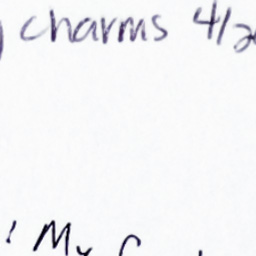 ) charms 4/2
! My